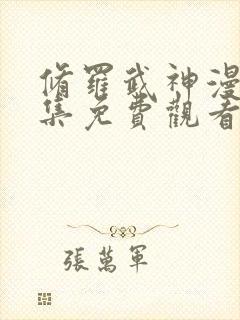 脩羅武神漫
集免費觀看
張萬軍